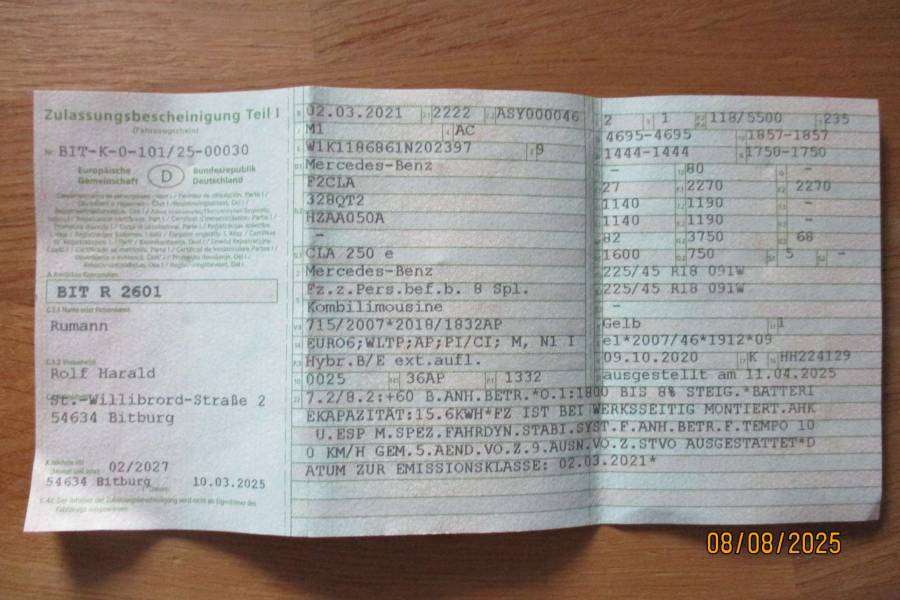 Zulassungsbescheinigung Teil I
(Fahrzeugschein)
Nr. BIT-K-0-101/25-00030
Europäische Gemeinschaft D Bundesrepublik Deutschland
A Amtliches Kennzeichen
BIT R 2601
C.1.1 Name oder Firmenname
Rumann
C.1.2 Vorname(n)
Rolf Harald
St.-Willibrord-Straße 2
54634 Bitburg
02/2027
54634 Bitburg 10.03.2025
02.03.2021 2222 ASY000046
M1 AC
W1K1186861N202397 9
Mercedes-Benz
F2CLA
328QT2
HZAA050A
-
CLA 250 e
Mercedes-Benz
Fz.z.Pers.bef.b. 8 Spl.
Kombilimousine
715/2007*2018/1832AP
EURO6;WLTP;AP;PI/CI; M, N1 I
Hybr.B/E ext.aufl.
0025 36AP 1332
2 1 118/5500 235
4695-4695 1857-1857
1444-1444 1750-1750
- 80 -
27 2270 2270
1140 1190 -
1140 1190 -
82 3750 68
1600 750 5 -
225/45 R18 091W
225/45 R18 091W
-
Gelb 1
e1*2007/46*1912*09
09.10.2020 K HH224129
ausgestellt am 11.04.2025
7.2/8.2:+60 B.ANH.BETR.*O.1:1800 BIS 8% STEIG.*BATTERI
EKAPAZITÄT:15.6KWH*FZ IST BEI WERKSSEITIG MONTIERT.AHK
U.ESP M.SPEZ.FAHRDYN.STABI.SYST.F.ANH.BETR.F.TEMPO 10
0 KM/H GEM.5.AEND.VO.Z.9.AUSN.VO.Z.STVO AUSGESTATTET*D
ATUM ZUR EMISSIONSKLASSE: 02.03.2021*
08/08/2025